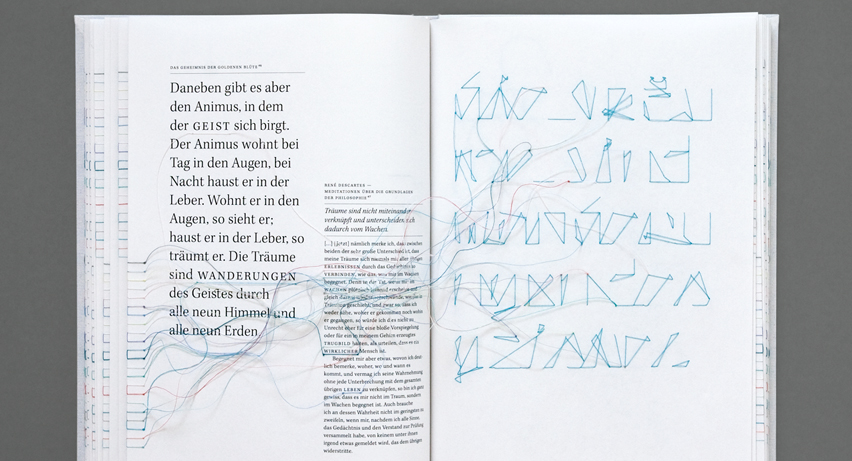 DAS GEHEIMNIS DER GOLDENEN BLÜTE
Daneben gibt es aber
den Animus, in dem
der GEIST sich birgt.
Der Animus wohnt bei
Tag in den Augen, bei
Nacht haust er in der
Leber. Wohnt er in den
Augen, so sieht er;
haust er in der Leber, so
träumt er. Die Träume
sind WANDERUNGEN
des Geistes durch
alle neun Himmel und
alle neun Erden.
RENÉ DESCARTES —
MEDITATIONEN ÜBER DIE GRUNDLAGEN
DER PHILOSOPHIE
Träume sind nicht miteinander
verknüpft und unterscheiden sich
dadurch vom Wachen.
[...] [Jetzt] nämlich merke ich, dass zwischen
beiden der sehr große Unterschied ist, dass
meine Träume sich niemals mit allen übrigen
ERLEBNISSEN durch das Gedächtnis so
VERBINDEN, wie das, was mir im Wachen
begegnet. Denn in der Tat, wenn mir im
WACHEN plötzlich jemand erschiene und
gleich darauf wieder verschwände, wie das in
Träumen geschieht, und zwar so, dass ich
weder sähe, woher er gekommen noch wohin
er gegangen, so würde ich dies nicht zu
Unrecht eher für eine bloße Vorspiegelung
oder für ein in meinem Gehirn erzeugtes
TRUGBILD halten, als urteilen, dass es ein
WIRKLICHER Mensch ist.
Begegnet mir aber etwas, wovon ich deut-
lich bemerke, woher, wo und wann es
kommt, und vermag ich seine Wahrnehmung
ohne jede Unterbrechung mit dem gesamten
übrigen LEBEN zu verknüpfen, so bin ich ganz
gewiss, dass es mir nicht im Traum, sondern
im Wachen begegnet ist. Auch brauche
ich an dessen Wahrheit nicht im geringsten zu
zweifeln, wenn mir, nachdem ich alle Sinne,
das Gedächtnis und den Verstand zur Prüfung
versammelt habe, von keinem unter ihnen
irgend etwas gemeldet wird, das dem übrigen
widerstritte.